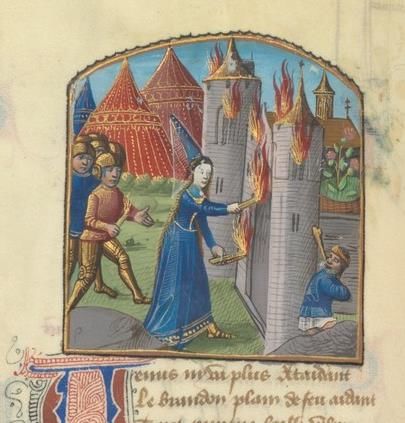 Venus ni va plus Attandant
Le brandon plain de feu ardant